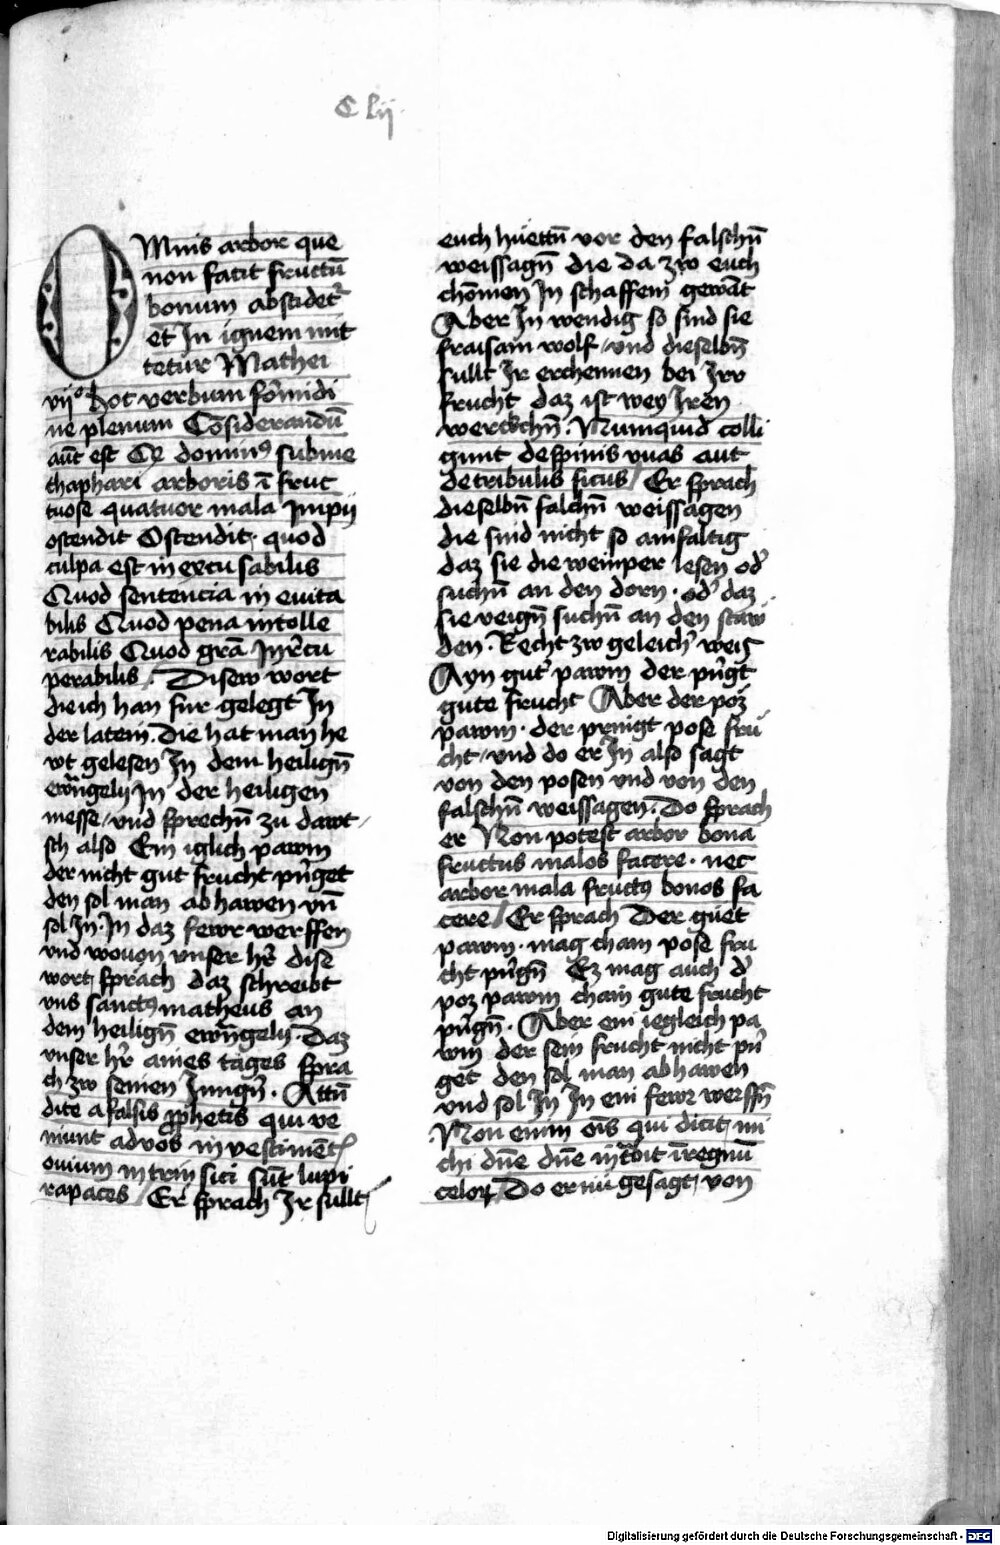 C lij
OMnis arbor que
non facit fructū
bonum abscidet᷑
et In ignem mit
tetur Mathei
vijº hoc verbum formidi
ne plenum Cōsiderandū
aūt est Qz dominꝰ subme
thaphari arboris ī fruc
tuose quatuor mala Impij
ostendit Ostendit· quod
culpa est in excusabilis
Quod sentencia in euita
bilis Quod pena intolle
rabilis Quod grā Inrecu
perabilis / Disew wort
die ich han fur gelegt In
der latein. Die hat man he
wt gelesen In dem heiligñ
ewāngelij In der heiligen
messe / vnd sprechñ zu dawt /
sch also Ein iglich pawm
der nicht gut frucht pringet
den sol man ab hawen vñ
sol In· In daz fewr werffen
vnd wouon vnser hr̄ dise
wort sprach daz schreibt
vns sanctꝰ matheus an
dem heiligñ ewāngelij· Daz
vnser hr̄ aines tages spra
ch zw seinen Jungern · Attñ
dite a falsis ꝓphetis qui ve
niunt ad vos in vestimēt᷑
ouium intrinsici sūt lupi
rapaces / Er sprach Ir sullt /
euch hüettñ vor den falschñ
weissagñ die da zw euch
chōmen In schaffem gewāt
Aber In wendig so sind sie
fraisam wolf / vnd dieselbñ
sullt Ir erchennen bei Irr
frucht daz ist wey Iren
werckchñ · Numquid colli
gunt de spinis vuas aut
de tribulis ficus / Er sprach
dieselbñ falchñ weissagen
die sind nicht so ainfaltig
daz sie die weinper lesen od᷑
suchñ an den dorn · od᷑ daz
sie veigñ suchñ an den staw
den · Recht zw geleich᷑ weis
Ayn gut᷑ pawm der pringt
gute frucht Aber der poz
pawm · der prinigt pose fru
cht / vnd do er In also sagt
von den posen vnd von den
falschñ weissagen · Do sprach
er Non potest arbor bona
fructus malos facere · nec
arbor mala fructꝰ bonos fa
cere / Er sprach Der güet
pawm · mag cham pose fru
cht pringñ Ez mag auch d᷑
poz pawm cham gute frucht
pringñ · Aber ein iegleich pa
wm der sein frucht nicht prin
get den sol man ab hawen
vnd sol In In ein fewr werffñ
Non enim ois̄ qui dicit mi
chi dñe dñe intrabit ī regnū
celoꝝ / Do er nü gesagt / von
Digitalisierung gefördert durch die Deutsche Forschungsgemeinschaft - DFG